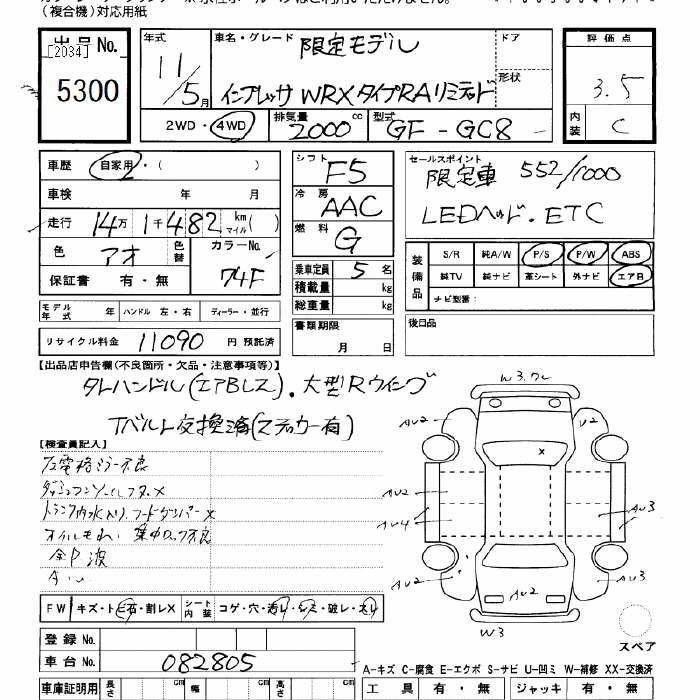 (複合機)対応用紙
出品No.
[2034]
5300
年式
11/5月
車名・グレード
限定モデル
インプレッサ WRXタイプRAリミテッド
ドア
形状
2WD・4WD
排気量 2000 cc
型式 GF - GC8
評価点
3.5
内装 C
車歴 自家用・( )
車検 年 月
走行 14万 1千482 km マイル ( )
色 アオ 色替 カラーNo. 74F
保証書 有・無
モデル年式 年 ハンドル 左・右 ディーラー・並行
リサイクル料金 11090 円 預託済
シフト F5
冷房 AAC
燃料 G
乗車定員 5 名
積載量 kg
総重量 kg
書類期限
月 日
セールスポイント
限定車 552/1000
LEDヘッド.ETC
装備品
S/R 純A/W P/S P/W ABS
純TV 純ナビ 革シート 外ナビ エアB
ナビ型番:
後日品
【出品店申告欄(不良箇所・欠品・注意事項等)】
タレハンドル(エアBレス).大型Rウイング
Tベルト交換済(ステッカー有)
【検査員記入】
左電格ミラー不良
トランク内水入り、フードダンパー×
オイルもれ 集中ロック不良
全P波
FW キズ・トビ石・割レX シート内装 コゲ・穴・汚レ・シミ・破レ・スレ
登録No.
車台No. 082805
車庫証明用 長さ cm 幅 cm 高さ cm
W3.ワレ
AU2
U2
X
AU2
AU4
AU3
AU2
AU2
AU3
W3
スペア
A-キズ C-腐食 E-エクボ S-サビ U-凹ミ W-補修 XX-交換済
工具 有・無 ジャッキ 有・無